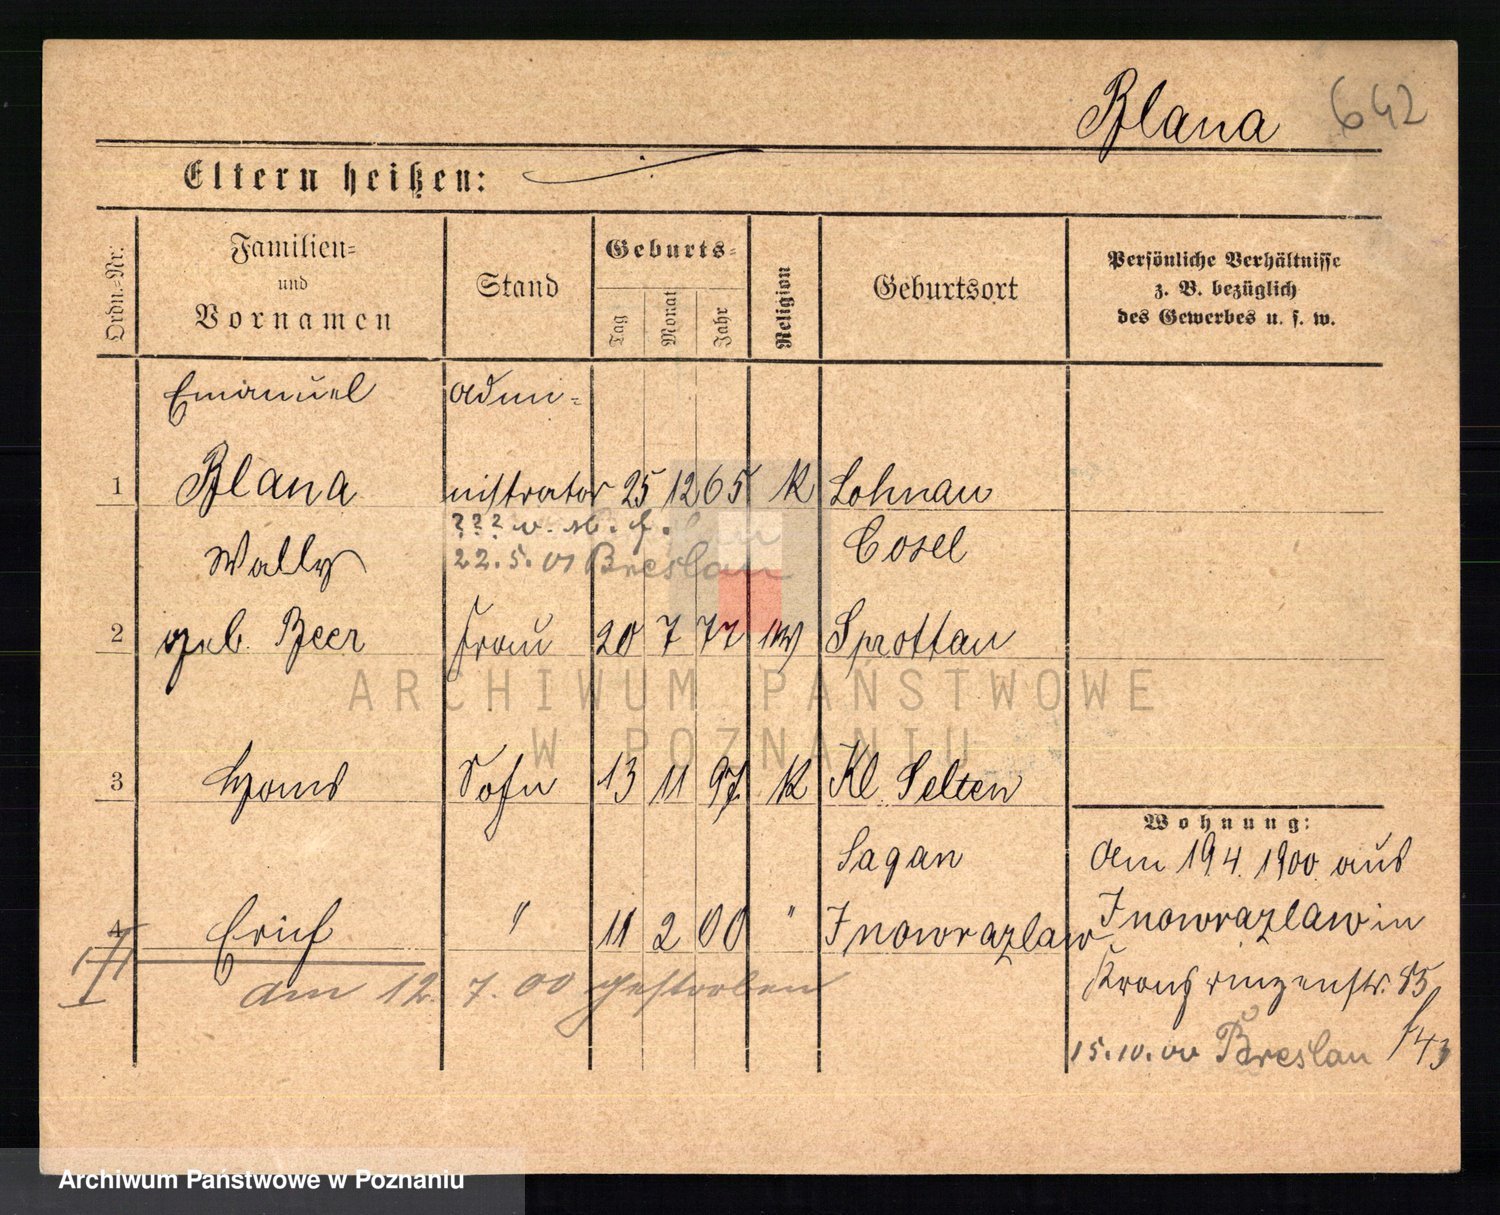 Blana 642
Eltern heißen:
Ordn.=Nr.
Familien=
und
Vornamen
Stand
Geburts=
Tag
Monat
Jahr
Religion
Geburtsort
Persönliche Verhältnisse
z. B. bezüglich
des Gewerbes u. s. w.
Emanuel Admi=
1 Blana nistrator 25 12 65 K Lohnau
??? v.
Wally 22.5.01 Breslau Cosel
2 geb. Beer Frau 20 7 77 Sprottau
ARCHIWUM PAŃSTWOWE
W POZNANIU
3 Hans Sohn 13 11 97 K Kl. Selten
Wohnung:
Sagan Am 19.4.1900 aus
4 Erich " 11 2 00 " Inowrazlaw Inowrazlaw in
am 12. 7. 00 gestorben Kronprinzenstr. 85
15.10.00 Breslau
Archiwum Państwowe w Poznaniu